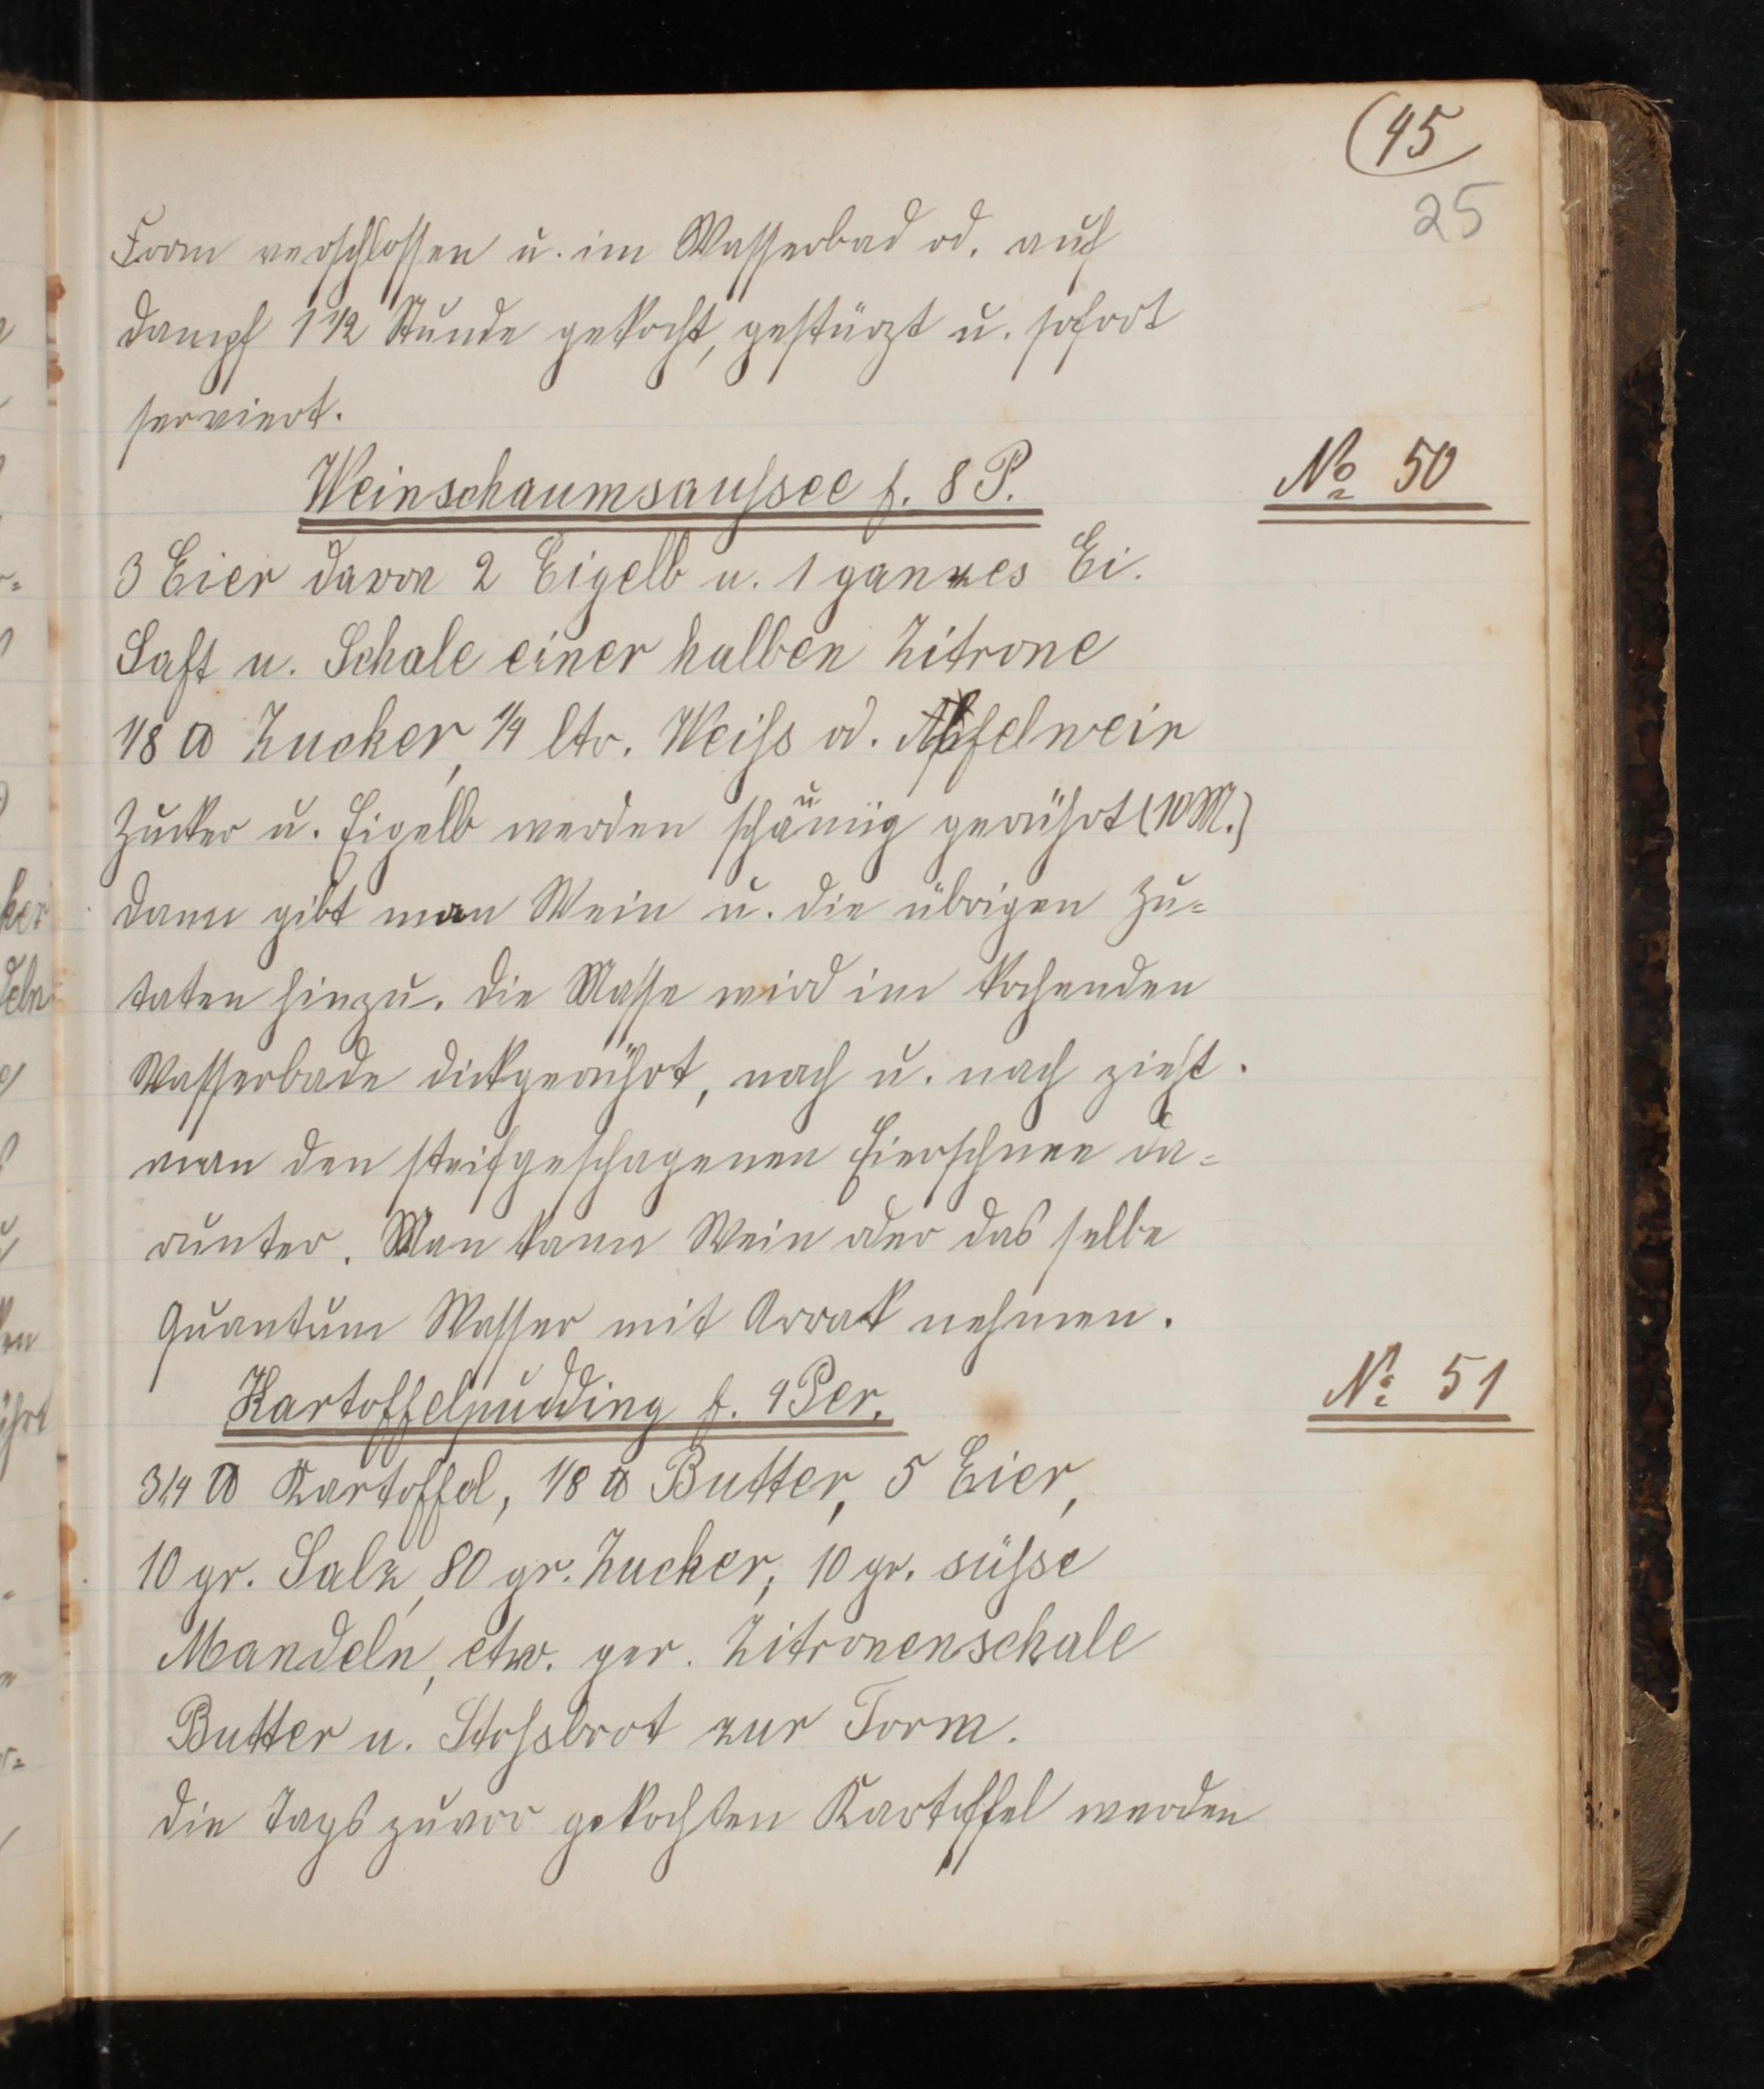 45
25
Form verschlossen u. im Wasserbad od. auf
Dampf 1 1/2 Stunde gekocht, gestürzt u. sofort
serviert.
Weinschaumsaußsee f. 8 P.
No 50
3 Eier davon 2 Eigelb u. 1 ganzes Ei.
Saft u. Schale einer halben Zitrone
1/8 ℔ Zucker, 1/4 ltr. Weiß od. Apfelwein
Zucker u. Eigelb werden schäumig gerührt (10 M.)
dann gibt man Wein u. die übrigen Zu=
taten hinzu. Die Masse wird im kochenden
Wasserbade dickgerührt, nach u. nach zieht.
man den steifgeschagenen Eierschnee da=
runter. Man kann Wein oder das selbe
Quantum Wasser mit Arrak nehmen.
Kartoffelpudding f. 4 Per.
No 51
3/4 ℔ Kartoffel, 1/8 ℔ Butter, 5 Eier,
10 gr. Salz, 80 gr. Zucker, 10 gr. süßse
Mandeln, etw. ger. Zitronenschale
Butter u. Stoßbrot zur Form.
Die Tags zuvor gekochten Kartoffel werden
ker
deln